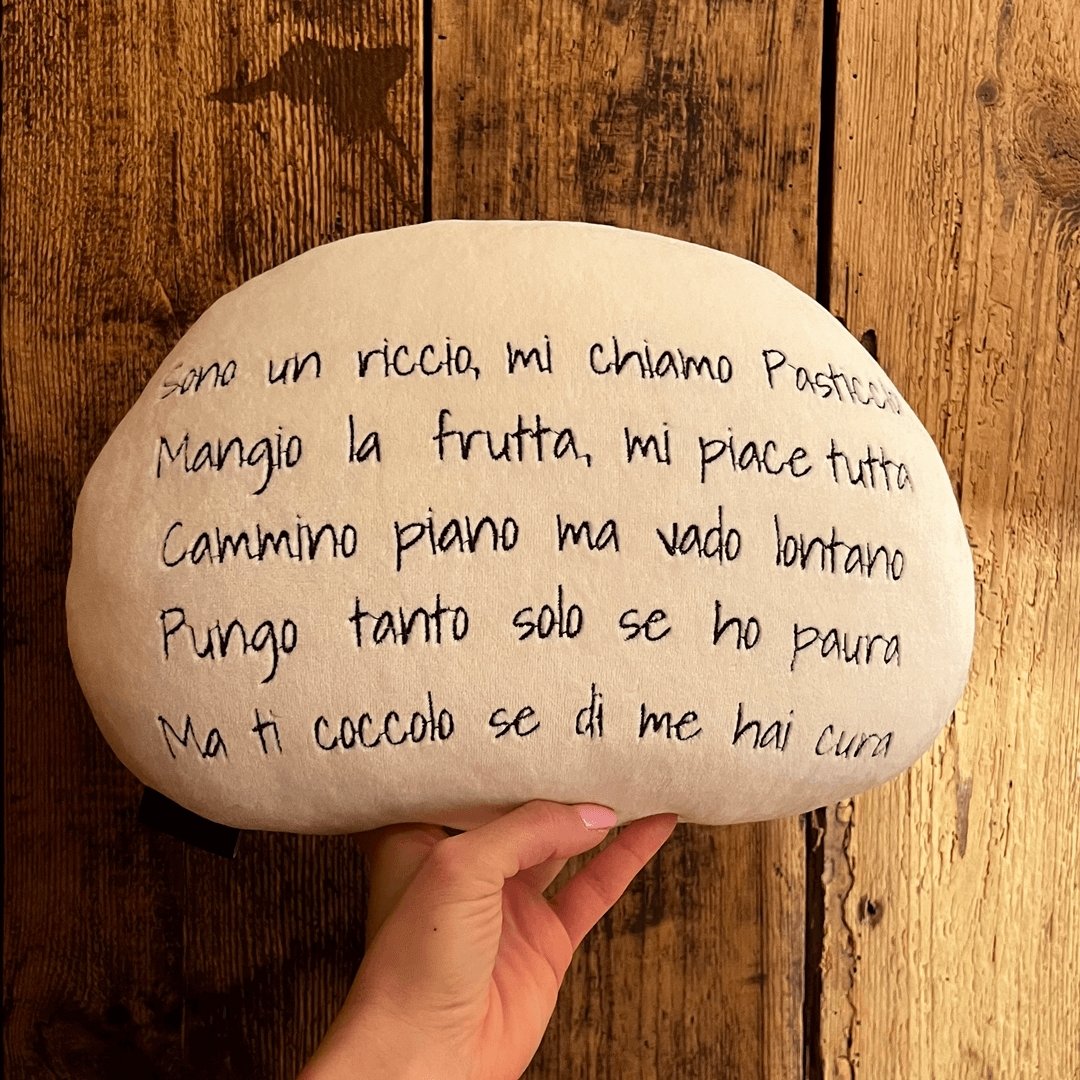 Sono un riccio, mi chiamo Pasticcio
Mangio la frutta, mi piace tutta
Cammino piano ma vado lontano
Pungo tanto solo se ho paura
Ma ti coccolo se di me hai cura